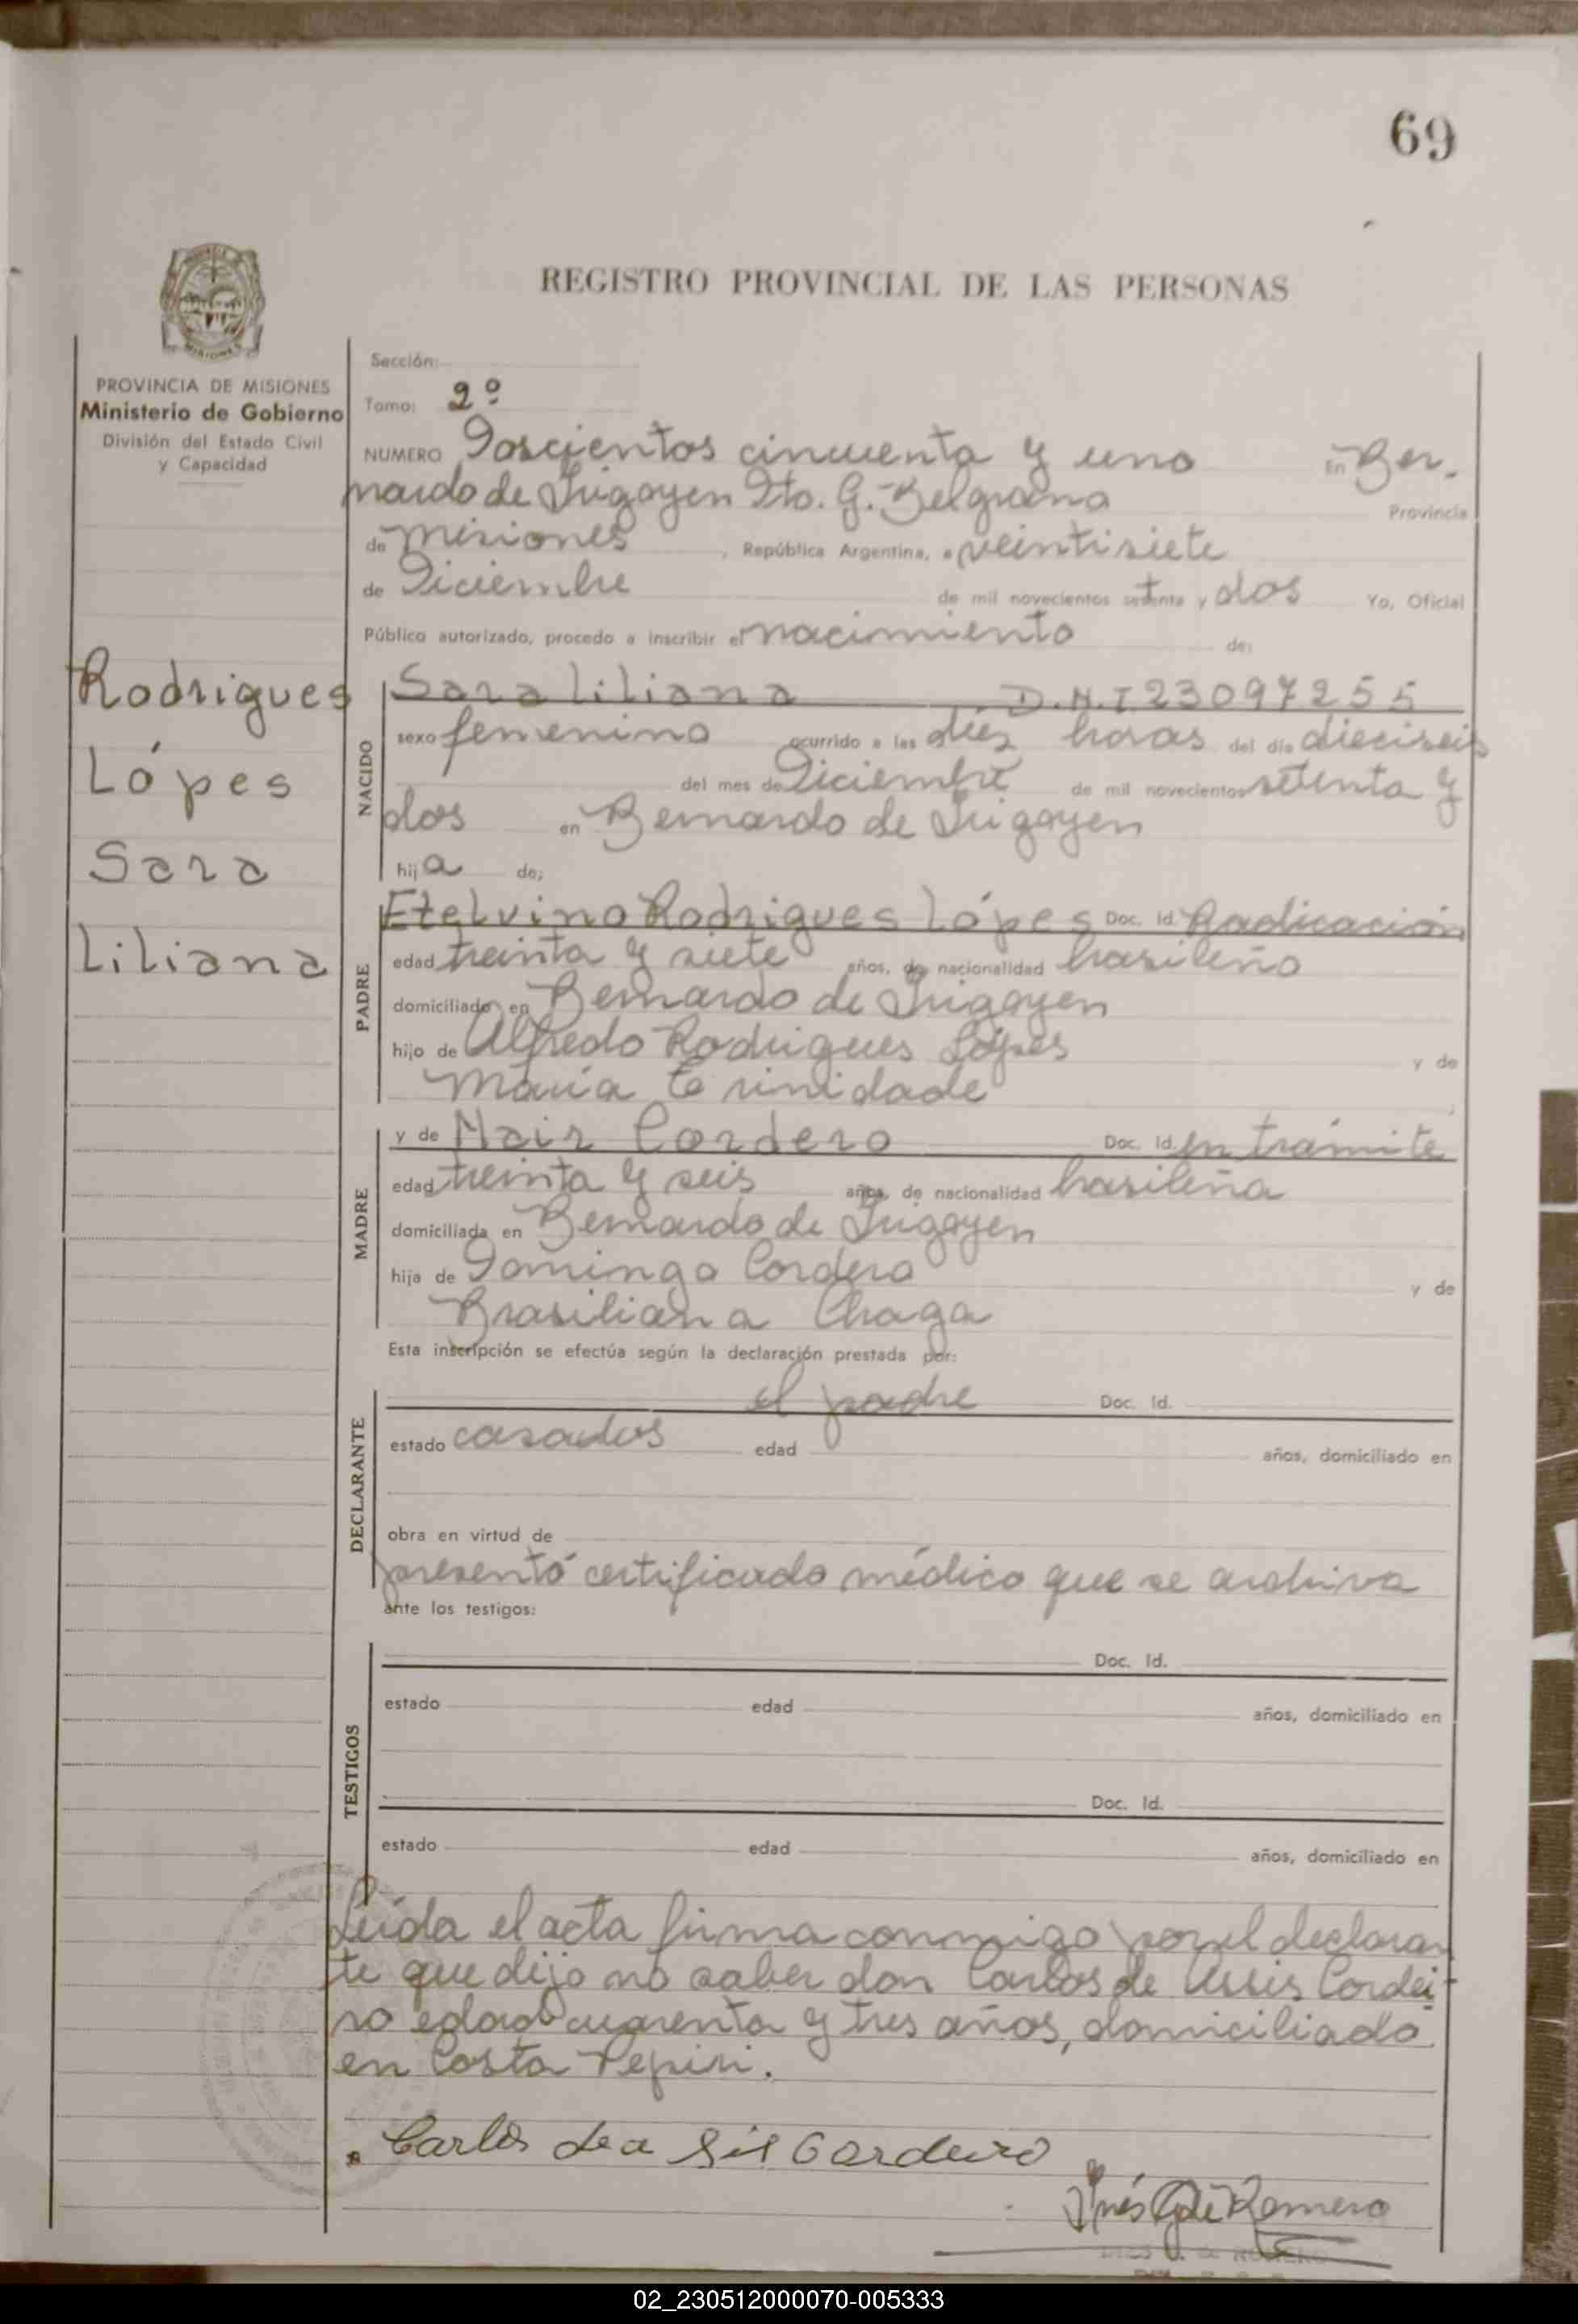 69
REGISTRO PROVINCIAL DE LAS PERSONAS
PROVINCIA DE MISIONES
Ministerio de Gobierno
División del Estado Civil
y Capacidad
Rodrigues
Lópes
Sara
Liliana
Sección:
Tomo: 2º
NUMERO Doscientos cincuenta y uno En Ber-
nardo de Irigoyen Dto. G. Belgrano Provincia
de Misiones, República Argentina, a veintisiete
de Diciembre de mil novecientos setenta y dos Yo, Oficial
Público autorizado, procedo a inscribir el nacimiento de:
NACIDO
Sara Liliana D.N.I 23097255
sexo femenino ocurrido a las diéz horas del día dieciseis
del mes de Diciembre de mil novecientos setenta y
dos en Bernardo de Irigoyen
hija de:
PADRE
Etelvino Rodrigues Lópes Doc. Id. Radicación
edad treinta y siete años, de nacionalidad brasileño
domiciliado en Bernardo de Irigoyen
hijo de Alfredo Rodrigues Lópes y de
María Terinidade
MADRE
y de Nair Cordero Doc. Id. en trámite
edad treinta y seis años, de nacionalidad brasileña
domiciliada en Bernardo de Irigoyen
hija de Domingo Cordero y de
Brasiliana Chaga
Esta inscripción se efectúa según la declaración prestada por:
DECLARANTE
el padre Doc. Id.
estado casados edad años, domiciliado en
obra en virtud de
presentó certificado médico que se archiva
ante los testigos:
TESTIGOS
Doc. Id.
estado edad años, domiciliado en
Doc. Id.
estado edad años, domiciliado en
Leída el acta firma conmigo por el declaran
te que dijo no saber don Carlos de Assis Cordei-
ro edad cuarenta y tres años, domiciliado
en Costa Pepiri.
Carlos de a Sis Cordeiro
Inés Romero
02_230512000070-005333